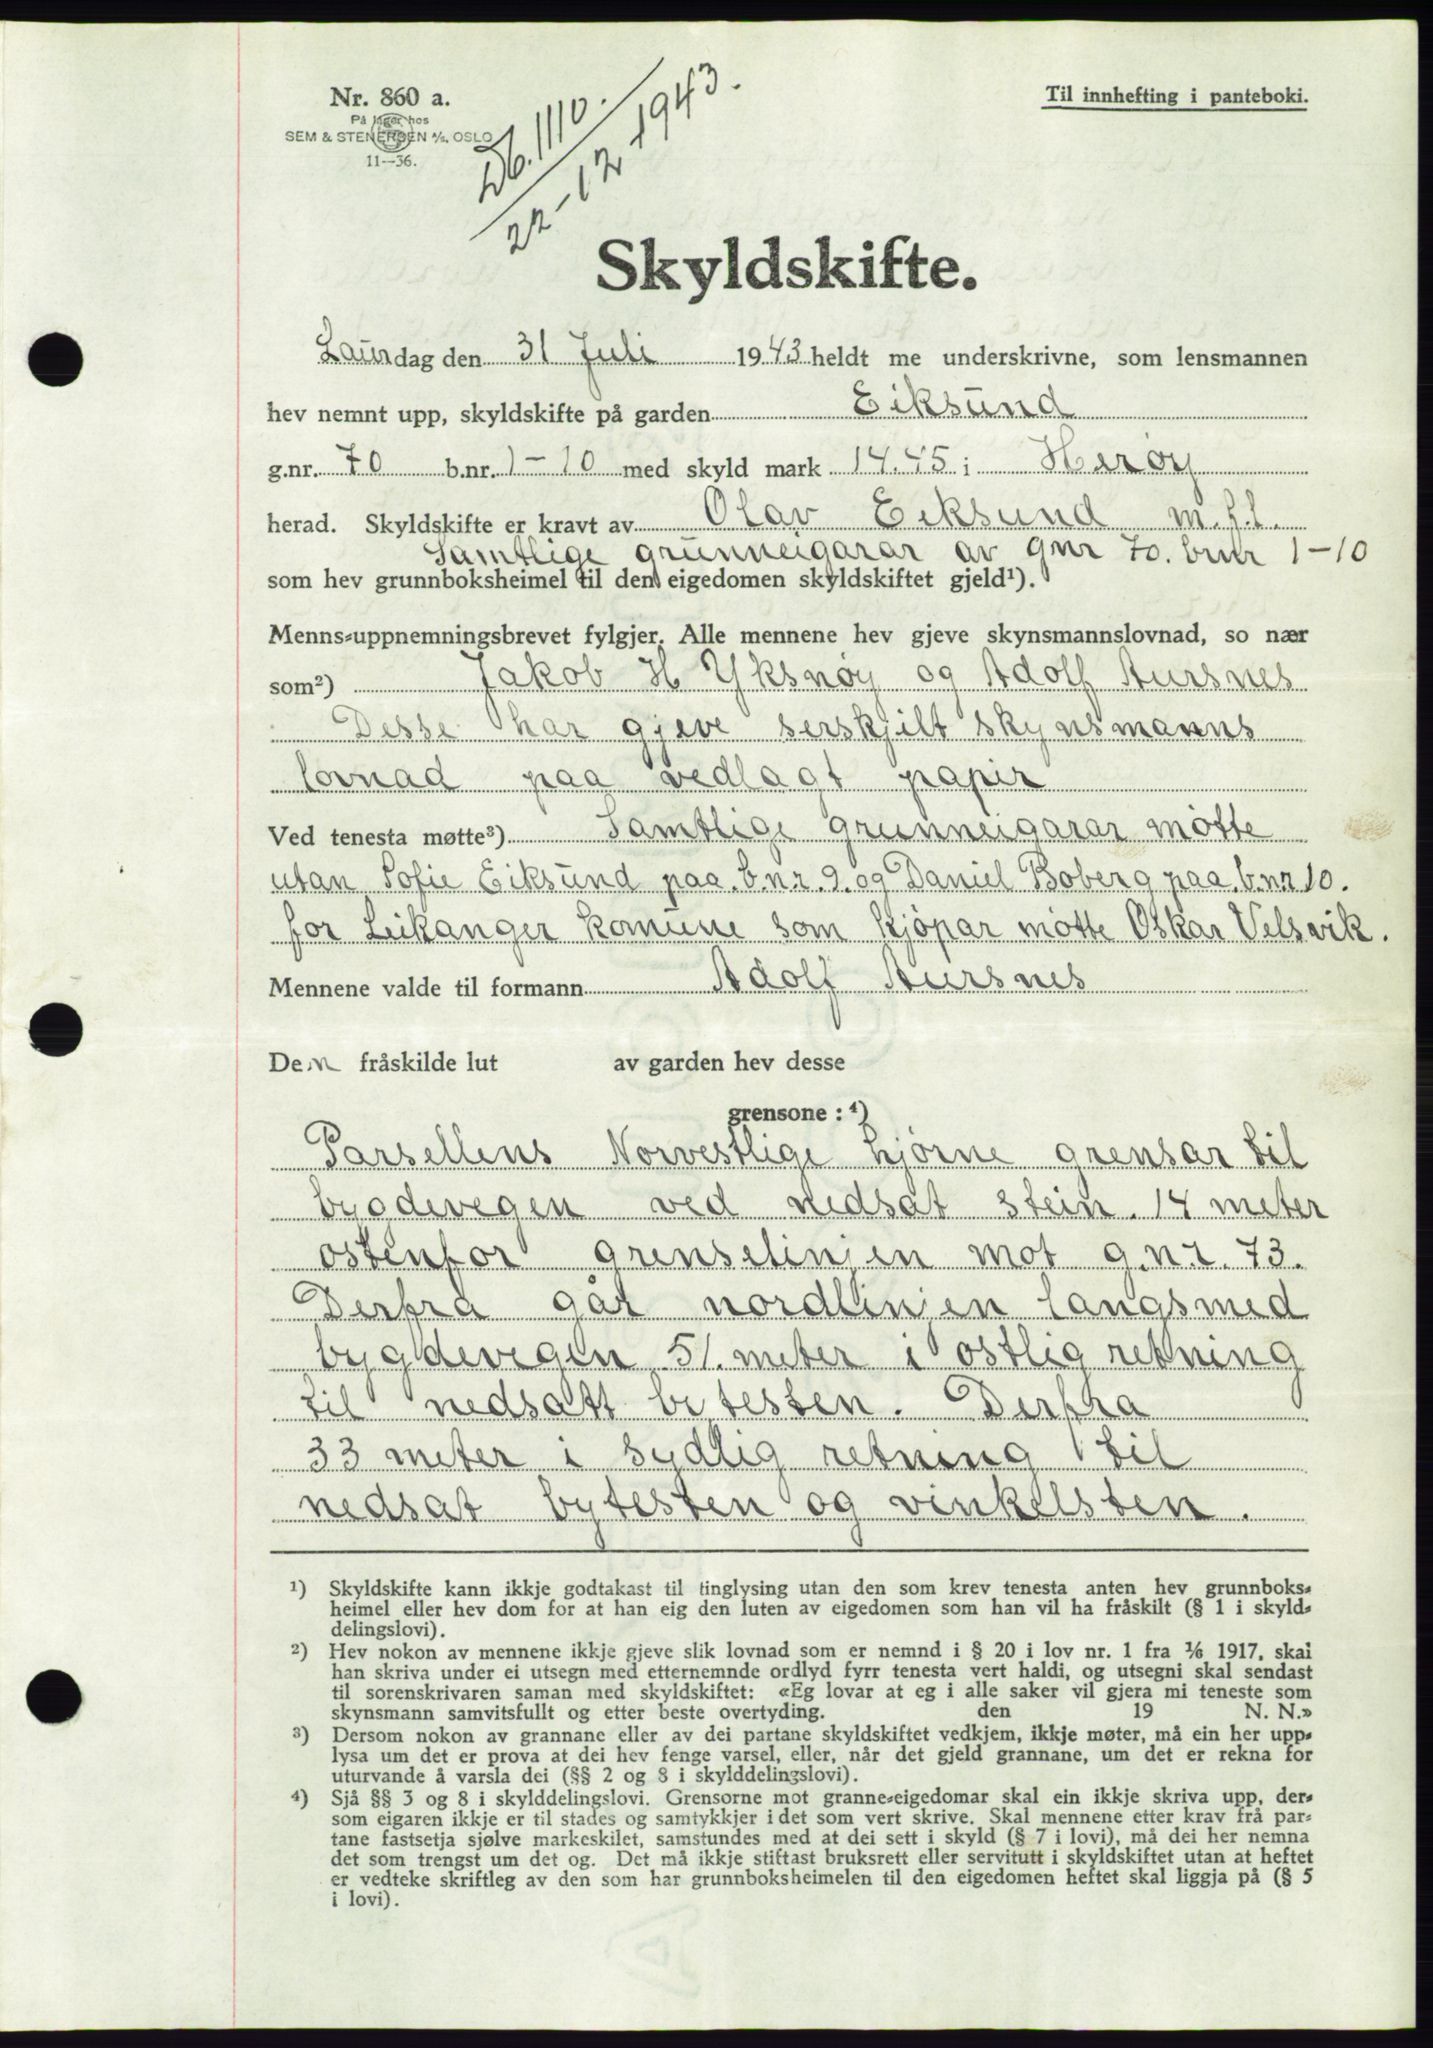 Nr. 860 a.
På lager hos
SEM & STENERSEN A/S. OSLO
11—36.
Db. 1110.
22-12-1943.
Til innhefting i panteboki.
Skyldskifte.
Laurdag den 31 Juli 1943 heldt me underskrivne, som lensmannen
hev nemnt upp, skyldskifte på garden Eiksund
g.nr. 70 b.nr. 1-10 med skyld mark 14.45 i Herøy
herad. Skyldskifte er kravt av Olav Eiksund m.f.l.
Samtlige grunneigarar av gnr 70. bnr 1-10
som hev grunnboksheimel til den eigedomen skyldskiftet gjeld¹).
Menns-uppnemningsbrevet fylgjer. Alle mennene hev gjeve skynsmannslovnad, so nær
som²) Jakob H Yksnøy og Adolf Aursnes
Desse har gjeve serskjilt skynsmanns
lovnad paa vedlagt papir
Ved tenesta møtte³) Samtlige grunneigarar møtte
utan Sofie Eiksund paa. b.nr. 9. og Daniel Boberg paa. b.nr 10.
for Leikanger komune som kjöpar møtte Oskar Velsvik.
Mennene valde til formann Adolf Aursnes
Den fråskilde lut av garden hev desse
grensone: ⁴)
Parsellens Norvestlige hjørne grensar til
bygdevegen ved nedsat stein. 14 meter
østenfor grenselinjen mot g.nr. 73.
Derfra går nordlinjen langsmed
bygdevegen 51. meter i østlig retning
til nedsatt bytesten. Derfra
33 meter i sydlig retning til
nedsat bytesten og vinkelsten.
¹) Skyldskifte kann ikkje godtakast til tinglysing utan den som krev tenesta anten hev grunnboks-
heimel eller hev dom for at han eig den luten av eigedomen som han vil ha fråskilt (§ 1 i skyld-
delingslovi).
²) Hev nokon av mennene ikkje gjeve slik lovnad som er nemnd i § 20 i lov nr. 1 fra 1/6 1917, skal
han skriva under ei utsegn med etternemnde ordlyd fyrr tenesta vert haldi, og utsegni skal sendast
til sorenskrivaren saman med skyldskiftet: «Eg lovar at eg i alle saker vil gjera mi teneste som
skynsmann samvitsfullt og etter beste overtyding. den 19 N. N.»
³) Dersom nokon av grannane eller av dei partane skyldskiftet vedkjem, ikkje møter, må ein her upp-
lysa um det er prova at dei hev fenge varsel, eller, når det gjeld grannane, um det er rekna for
uturvande å varsla dei (§§ 2 og 8 i skylddelingslovi).
⁴) Sjå §§ 3 og 8 i skylddelingslovi. Grensorne mot granne-eigedomar skal ein ikkje skriva upp, der-
som eigaren ikkje er til stades og samtykkjer i det som vert skrive. Skal mennene etter krav frå par-
tane fastsetja sjølve markeskilet, samstundes med at dei sett i skyld (§ 7 i lovi), må dei her nemna
det som trengst um det og. Det må ikkje stiftast bruksrett eller servitutt i skyldskiftet utan at heftet
er vedteke skriftleg av den som har grunnboksheimelen til den eigedomen heftet skal liggja på (§ 5
i lovi).